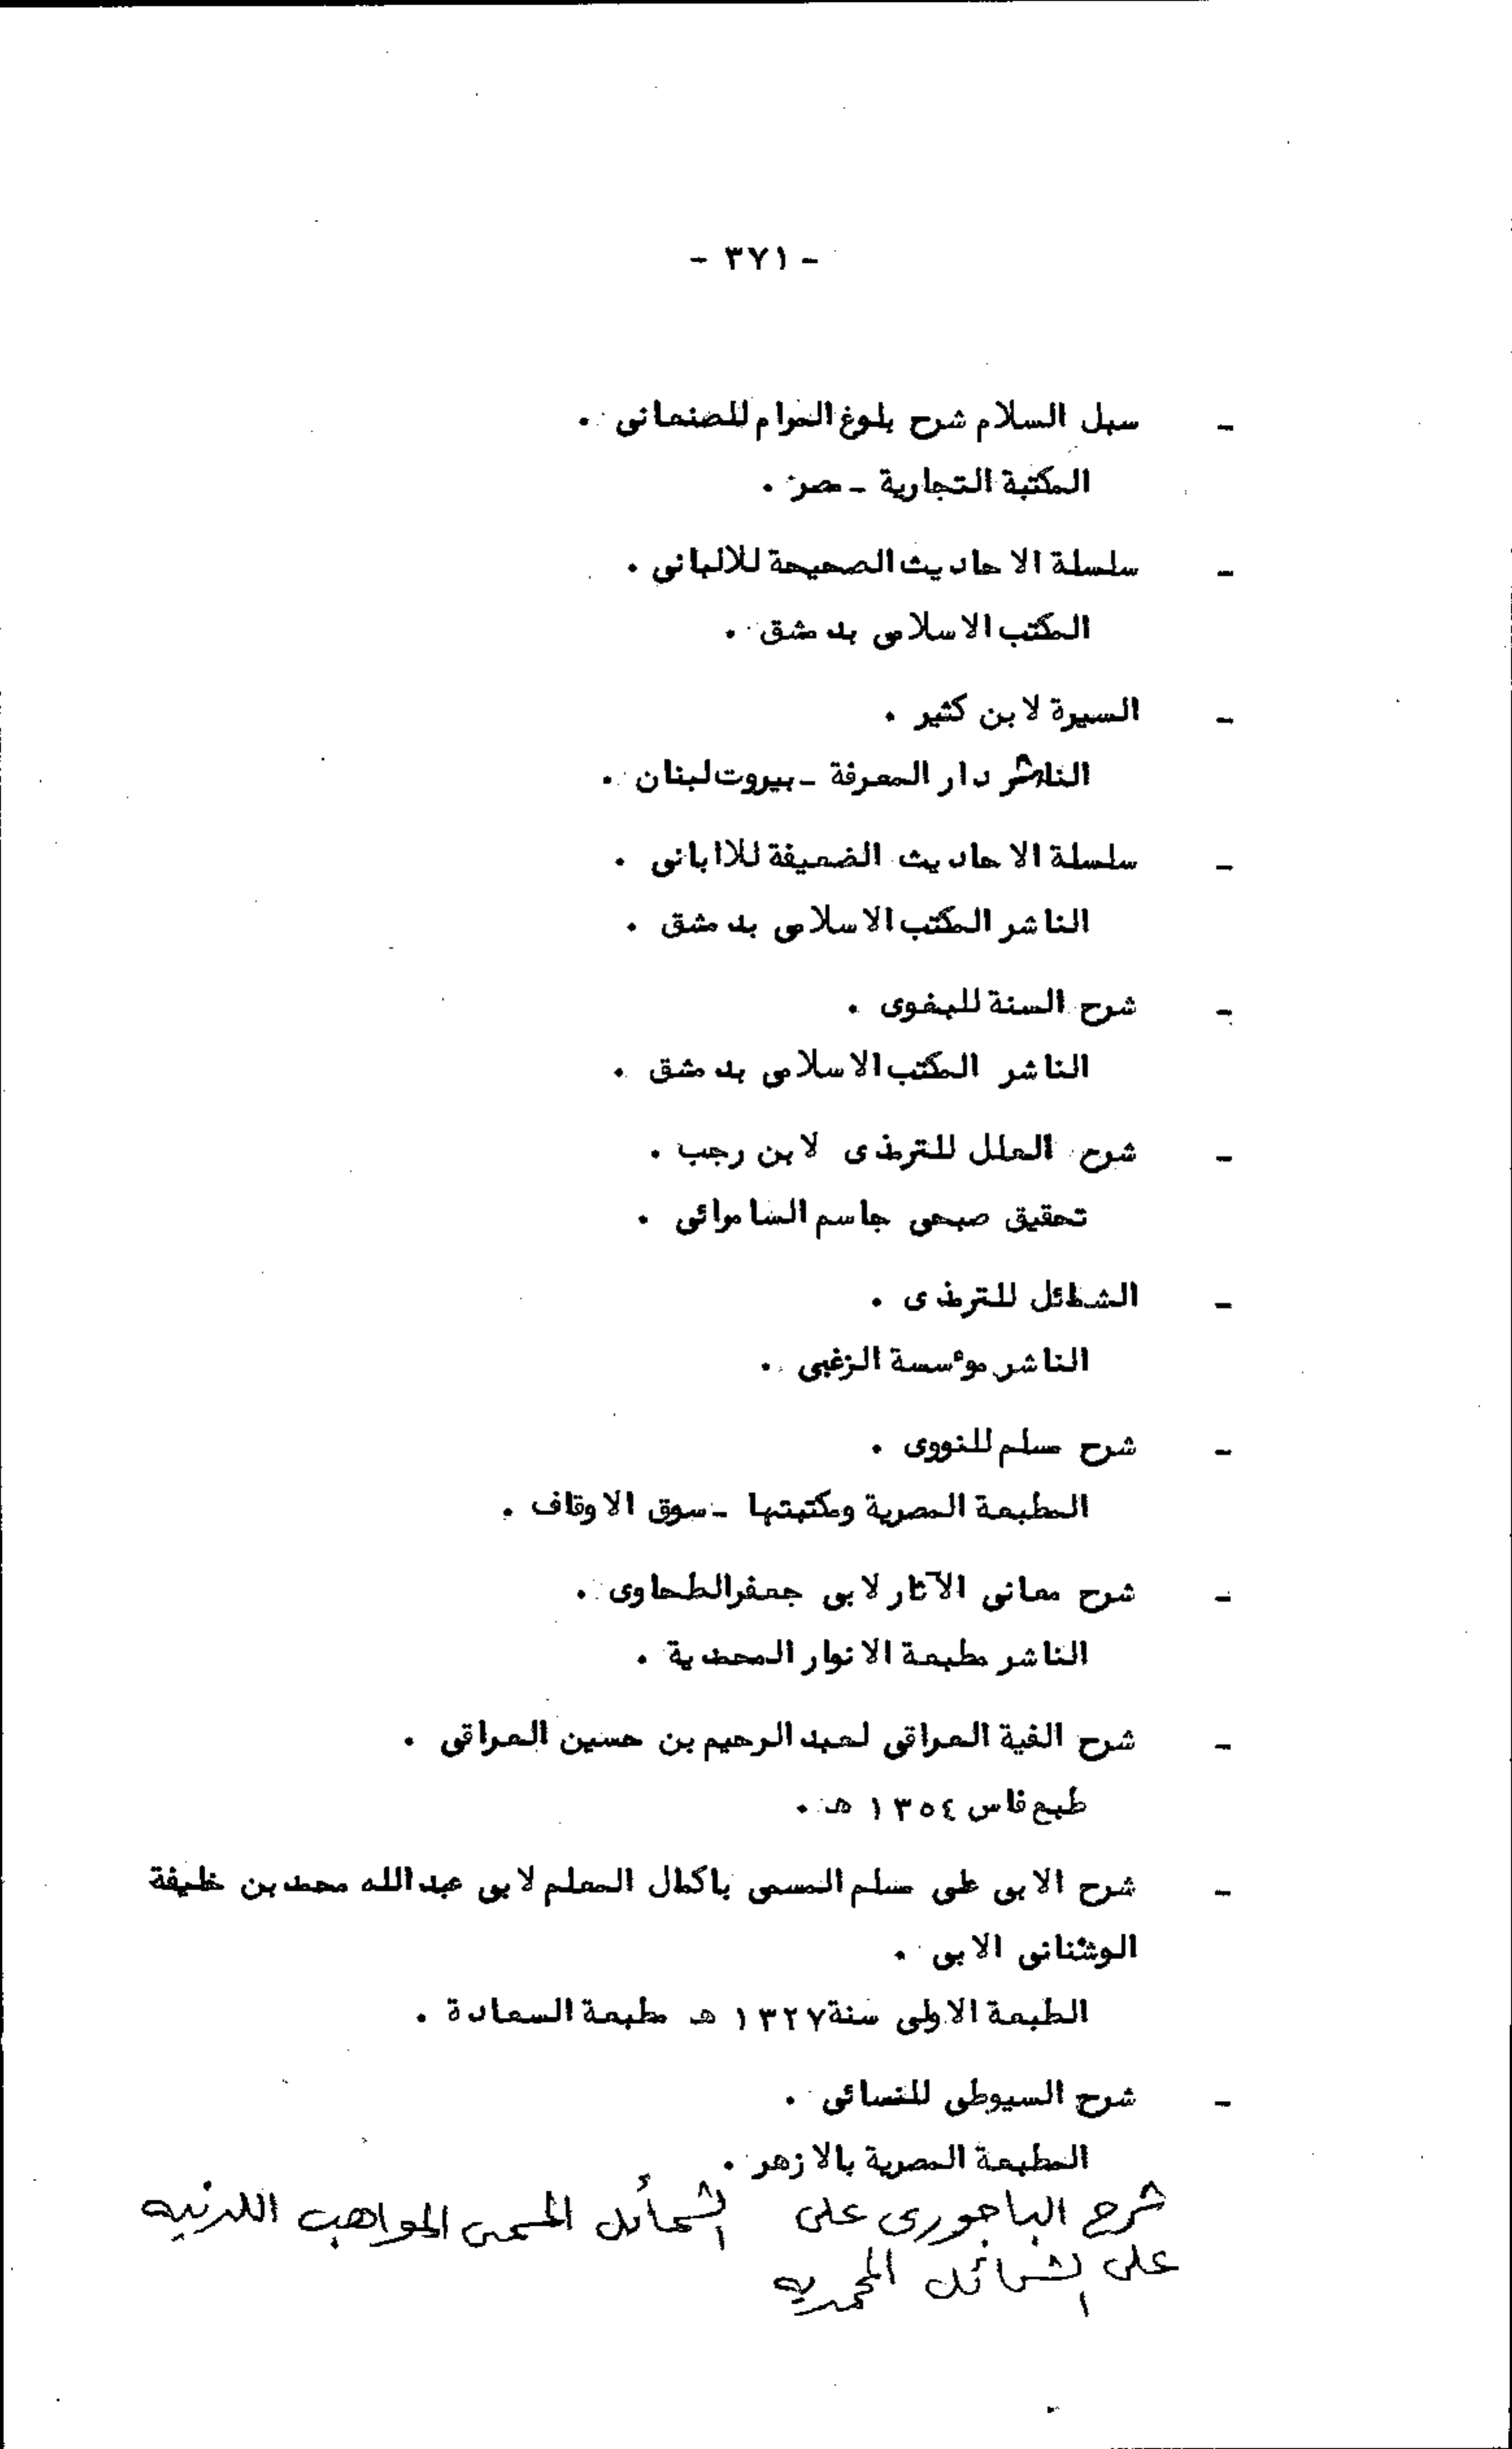 - ٣٧١ -
- سبل السلام شرح بلوغ المرام للصنعانى .
المكتبة التجارية - مصر .
- سلسلة الاحاديث الصحيحة للالبانى .
المكتب الاسلامى بدمشق .
- السيرة لابن كثير .
الناشر دار المعرفة - بيروت لبنان .
- سلسلة الاحاديث الضعيفة للاابانى .
الناشر المكتب الاسلامى بدمشق .
- شرح السنة للبغوى .
الناشر المكتب الاسلامى بدمشق .
- شرح العلل للترمذى لابن رجب .
تحقيق صبحى جاسم السامرائى .
- الشمائل للترمذى .
الناشر مؤسسة الزغبى .
- شرح مسلم للنووى .
المطبعة المصرية ومكتبتها - سوق الاوقاف .
- شرح معانى الآثار لابى جعفر الطحاوى .
الناشر مطبعة الانوار المحمدية .
- شرح الفية العراقى لعبد الرحيم بن حسين العراقى .
طبع فاس ١٣٥٤ هـ .
- شرح الابى على مسلم المسمى باكمال المعلم لابى عبدالله محمد بن خليفة
الوشنانى الابى .
الطبعة الاولى سنة ١٣٢٧ هـ مطبعة السعادة .
- شرح السيوطى للنسائى .
المطبعة المصرية بالازهر .
شرح الباجورى على الشمائل المسمى المواهب اللدنيه
على الشمائل المحمديه